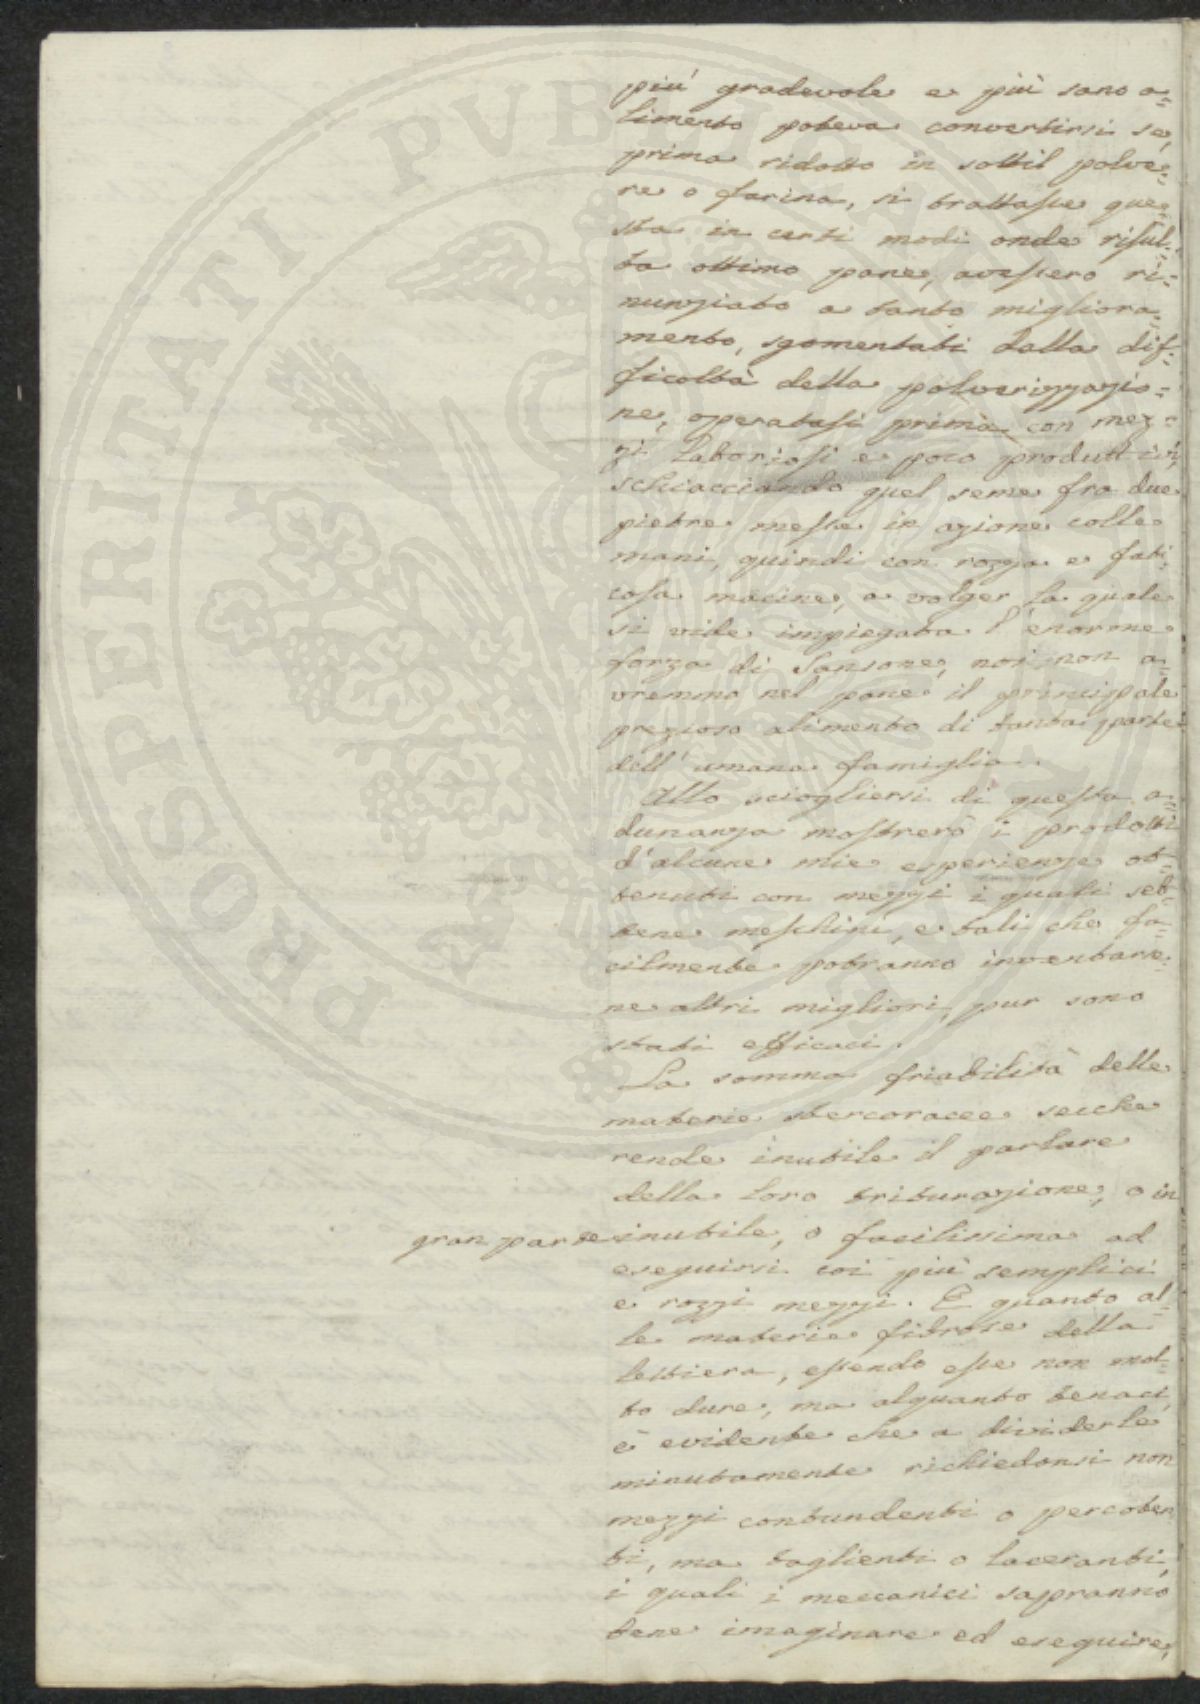 PROSPERITATI PUBLICAE AUGENDAE
più gradevole e più sano a=
limento poteva convertirsi se,
prima ridotto in sottil polve=
re o farina, si trattasse que=
sta in certi modi onde risul=
ta ottimo pane, avessero ri=
nunziato a tanto migliora=
mento, sgomentati dalla dif=
ficoltà della polverizzazio=
ne, operatasi prima con mez=
zi laboriosi e poco produttivi,
schiacciando quel seme fra due
pietre messe in azione colle
mani, quindi con rozza e fati=
cosa macine, a volger la quale
si vide impiegata l'enorme
forza di Sansone, noi non a=
vremmo nel pane il principale
prezioso alimento di tanta parte
dell'umana famiglia.
Allo sciogliersi di questa a=
dunanza mostrerò i prodotti
d'alcune mie esperienze ot=
tenuti con mezzi i quali seb=
bene meschini, e tali che fa=
cilmente potranno inventarse=
ne altri migliori, pur sono
stati efficaci.
La somma friabilità delle
materie stercoracee secche
rende inutile il parlare
della loro triturazione, o in
gran parte inutile, o facilissima ad
eseguirsi coi più semplici
e rozzi mezzi. E quanto al=
le materie fibrose della
lettiera, essendo esse non mol=
to dure, ma alquanto tenaci,
è evidente che a dividerle
minutamente richiedonsi non
mezzi contundenti o percoten
ti, ma taglienti o laceranti,
i quali i meccanici sapranno
bene imaginare ed eseguire,